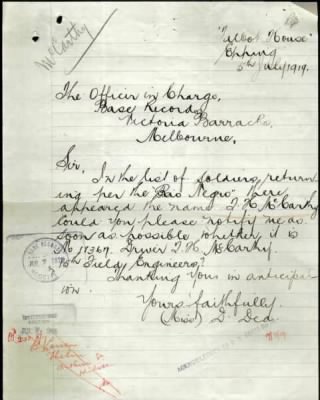 McCarthy
"Talbot House"
Epping
5th July 1919.
The Officer in Charge,
Base Records,
Victoria Barracks,
Melbourne,
Sir,
In the list of soldiers return
ing per the "Rio Negro" there
appeared the name F. H. McCarthy
could you please notify me as
soon as possible whether it is
No Driver F. H. McCarthy.
15th Field Engineers?
Thanking you in anticipat
ion
Yours faithfully.
(Miss) D Dea
BASE RECORDS
JUL 7 1919